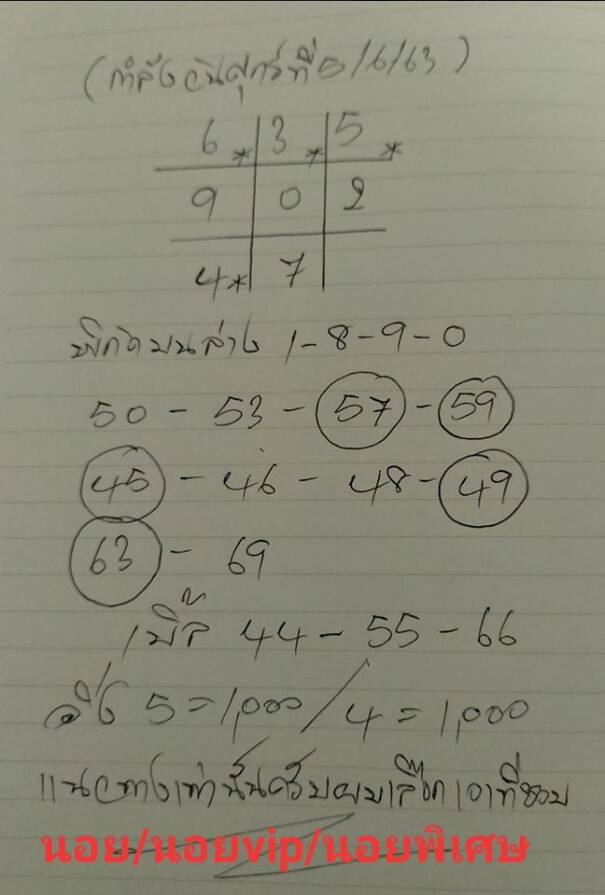 (กำลังวันศุกร์ที่ 5/6/63)
6* 3* 5*
9 0 2
4* 7
พิกัดบนล่าง 1-8-9-0
50 - 53 - 57 - 59
45 - 46 - 48 - 49
63 - 69
เบิ้ล 44 - 55 - 66
วิ่ง 5 = 1,000 / 4 = 1,000
แนวทางเท่านั้นครับ เลือกเอาที่ชอบ
นอย/นอยvip/นอยพิเศษ